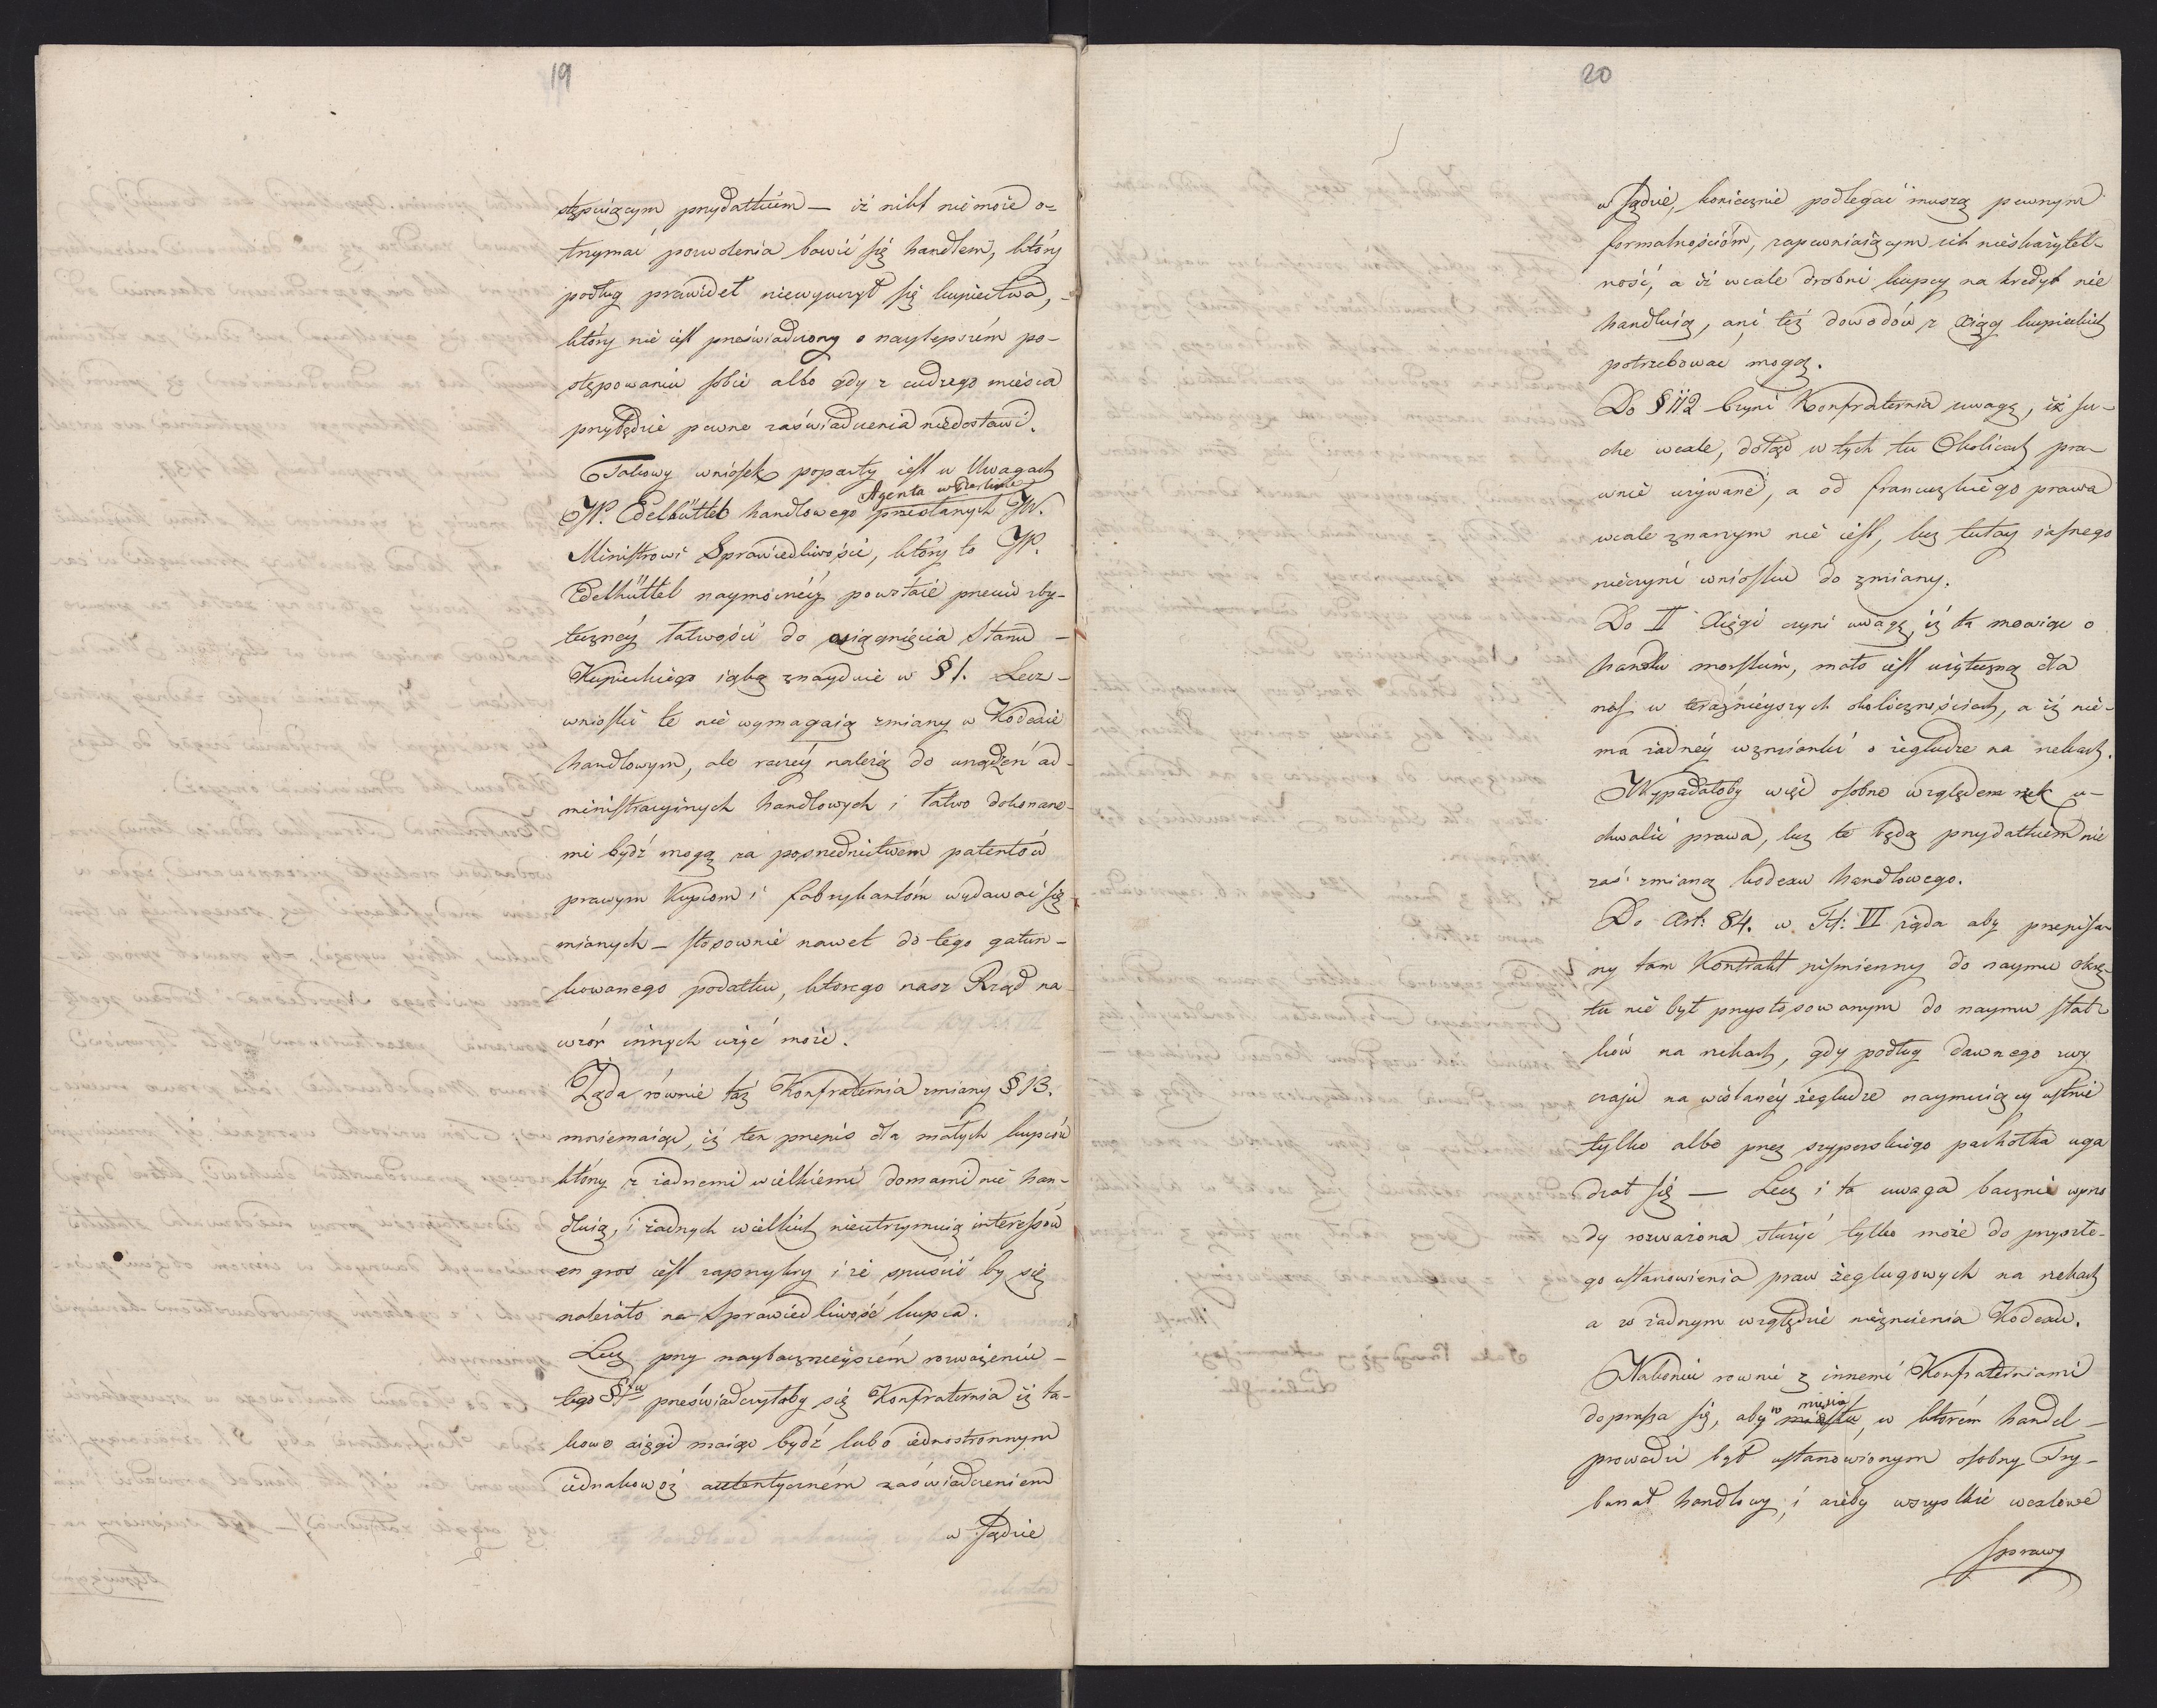 19
stępuiącym przydatkiem — iż nikt niemoże o-
trzymać pozwolenia bawić się handlem, który
podług prawideł niewyuczył się kupiectwa, -
który nie iest przeświadczony o naylepszém po-
stępowaniu sobie albo gdy z cudzego mieśca
przybędzie pewne zaświadczenia niedostawi.
Takowy wniosek poparty iest w Uwagach
Agenta w Berlinie
JP. Edelbüttel handlowego przesłanych JW.
Ministrowi Sprawiedliwości, który to JP.
Edelbüttel naymocniéy powstaie przeciw zby-
teczney łatwości do osiągnięcia Stanu -
Kupieckiego iaką znayduie w § 1. Lecz -
wnioski te nie wymagaią zmiany w Kodexie
handlowym, ale raczéy należą do urządzeń ad-
ministracyinych handlowych i łatwo dokonane-
mi bydź mogą za pośrednictwem patentów
prawym Kupcom i fabrykantóm wydawać się
mianych — stosownie nawet do tego gatun-
kowanego podatku, którego nasz Rząd na
wzór innych użyć może.
Żąda równie taż Konfraternia zmiany § 13.
mniemaiąc, iż ten przepis dla małych kupców
który z żadnemi wielkiemi domami nie han-
dluią, i żadnych wielkich nieutrzymuią interessów
en gros iest zaprzykry i że spuścić by się
należało na Sprawiedliwość kupca.
Lecz przy naybaczniéyszém rozważeniu -
tego §fu przeświadczyłaby się Konfraternia iż ta-
kowe xięgi maiąc bydź lubo iednostronnym
iednakowoż autentyczném zaświadczeniem
w Sądzie
20
w Sądzie, koniecznie podlegać muszą pewnym
formalnościóm, zapewniaiącym ich nieskazitel-
ność, a iż wcale drobni kupcy na kredyt nie
handluią, ani też dowodów z xiąg kupieckich
potrzebować mogą.
Do § 112 czyni Konfraternia uwagę, iż su-
che wexle, dotąd w tych tu Okolicach pra-
wnie używane, a od francuzkiego prawa
wcale znanym nie iest, lecz tutay iasnego
nieczyni wniosku do zmiany.
Do II Xięgi czyni uwagę, iż ta mowiąc o
handlu morskim, mało iest użyteczną dla
nas w teraźnieyszych okolicznościach, a iż nie-
ma żadnéy wzmianki o żegludze na rzekach.
Wypadałoby więc osobne względem rzek u-
chwalić prawa, lecz te będą przydatkiem nie
zaś zmianą kodexu handlowego.
Do Art: 84. w Tyt: VI żąda aby przepisa-
ny tam Kontrakt piśmienny do naymu okrę-
tu nie był przystosowanym do naymu stat-
ków na rzekach, gdy podług dawnego zwy
czaju na wiślanéy żegludze naymuiący ustnie
tylko albo przez szyperskiego pachołka uga
dzał się — Lecz i ta uwaga bacznie wpra
dy rozważona służyć tylko może do przyszłe-
go ustanowienia praw żeglugowych na rzekach
a w żadnym względzie nieznienia Kodexu.
Nakoniec rownie z innemi Konfraterniami
w mieyscu
doprasza się, aby miastu, w którém handel -
prowadzi był ustanowionym osobny Try-
bunał handlowy, i ażeby wszystkie wexlowe
sprawy